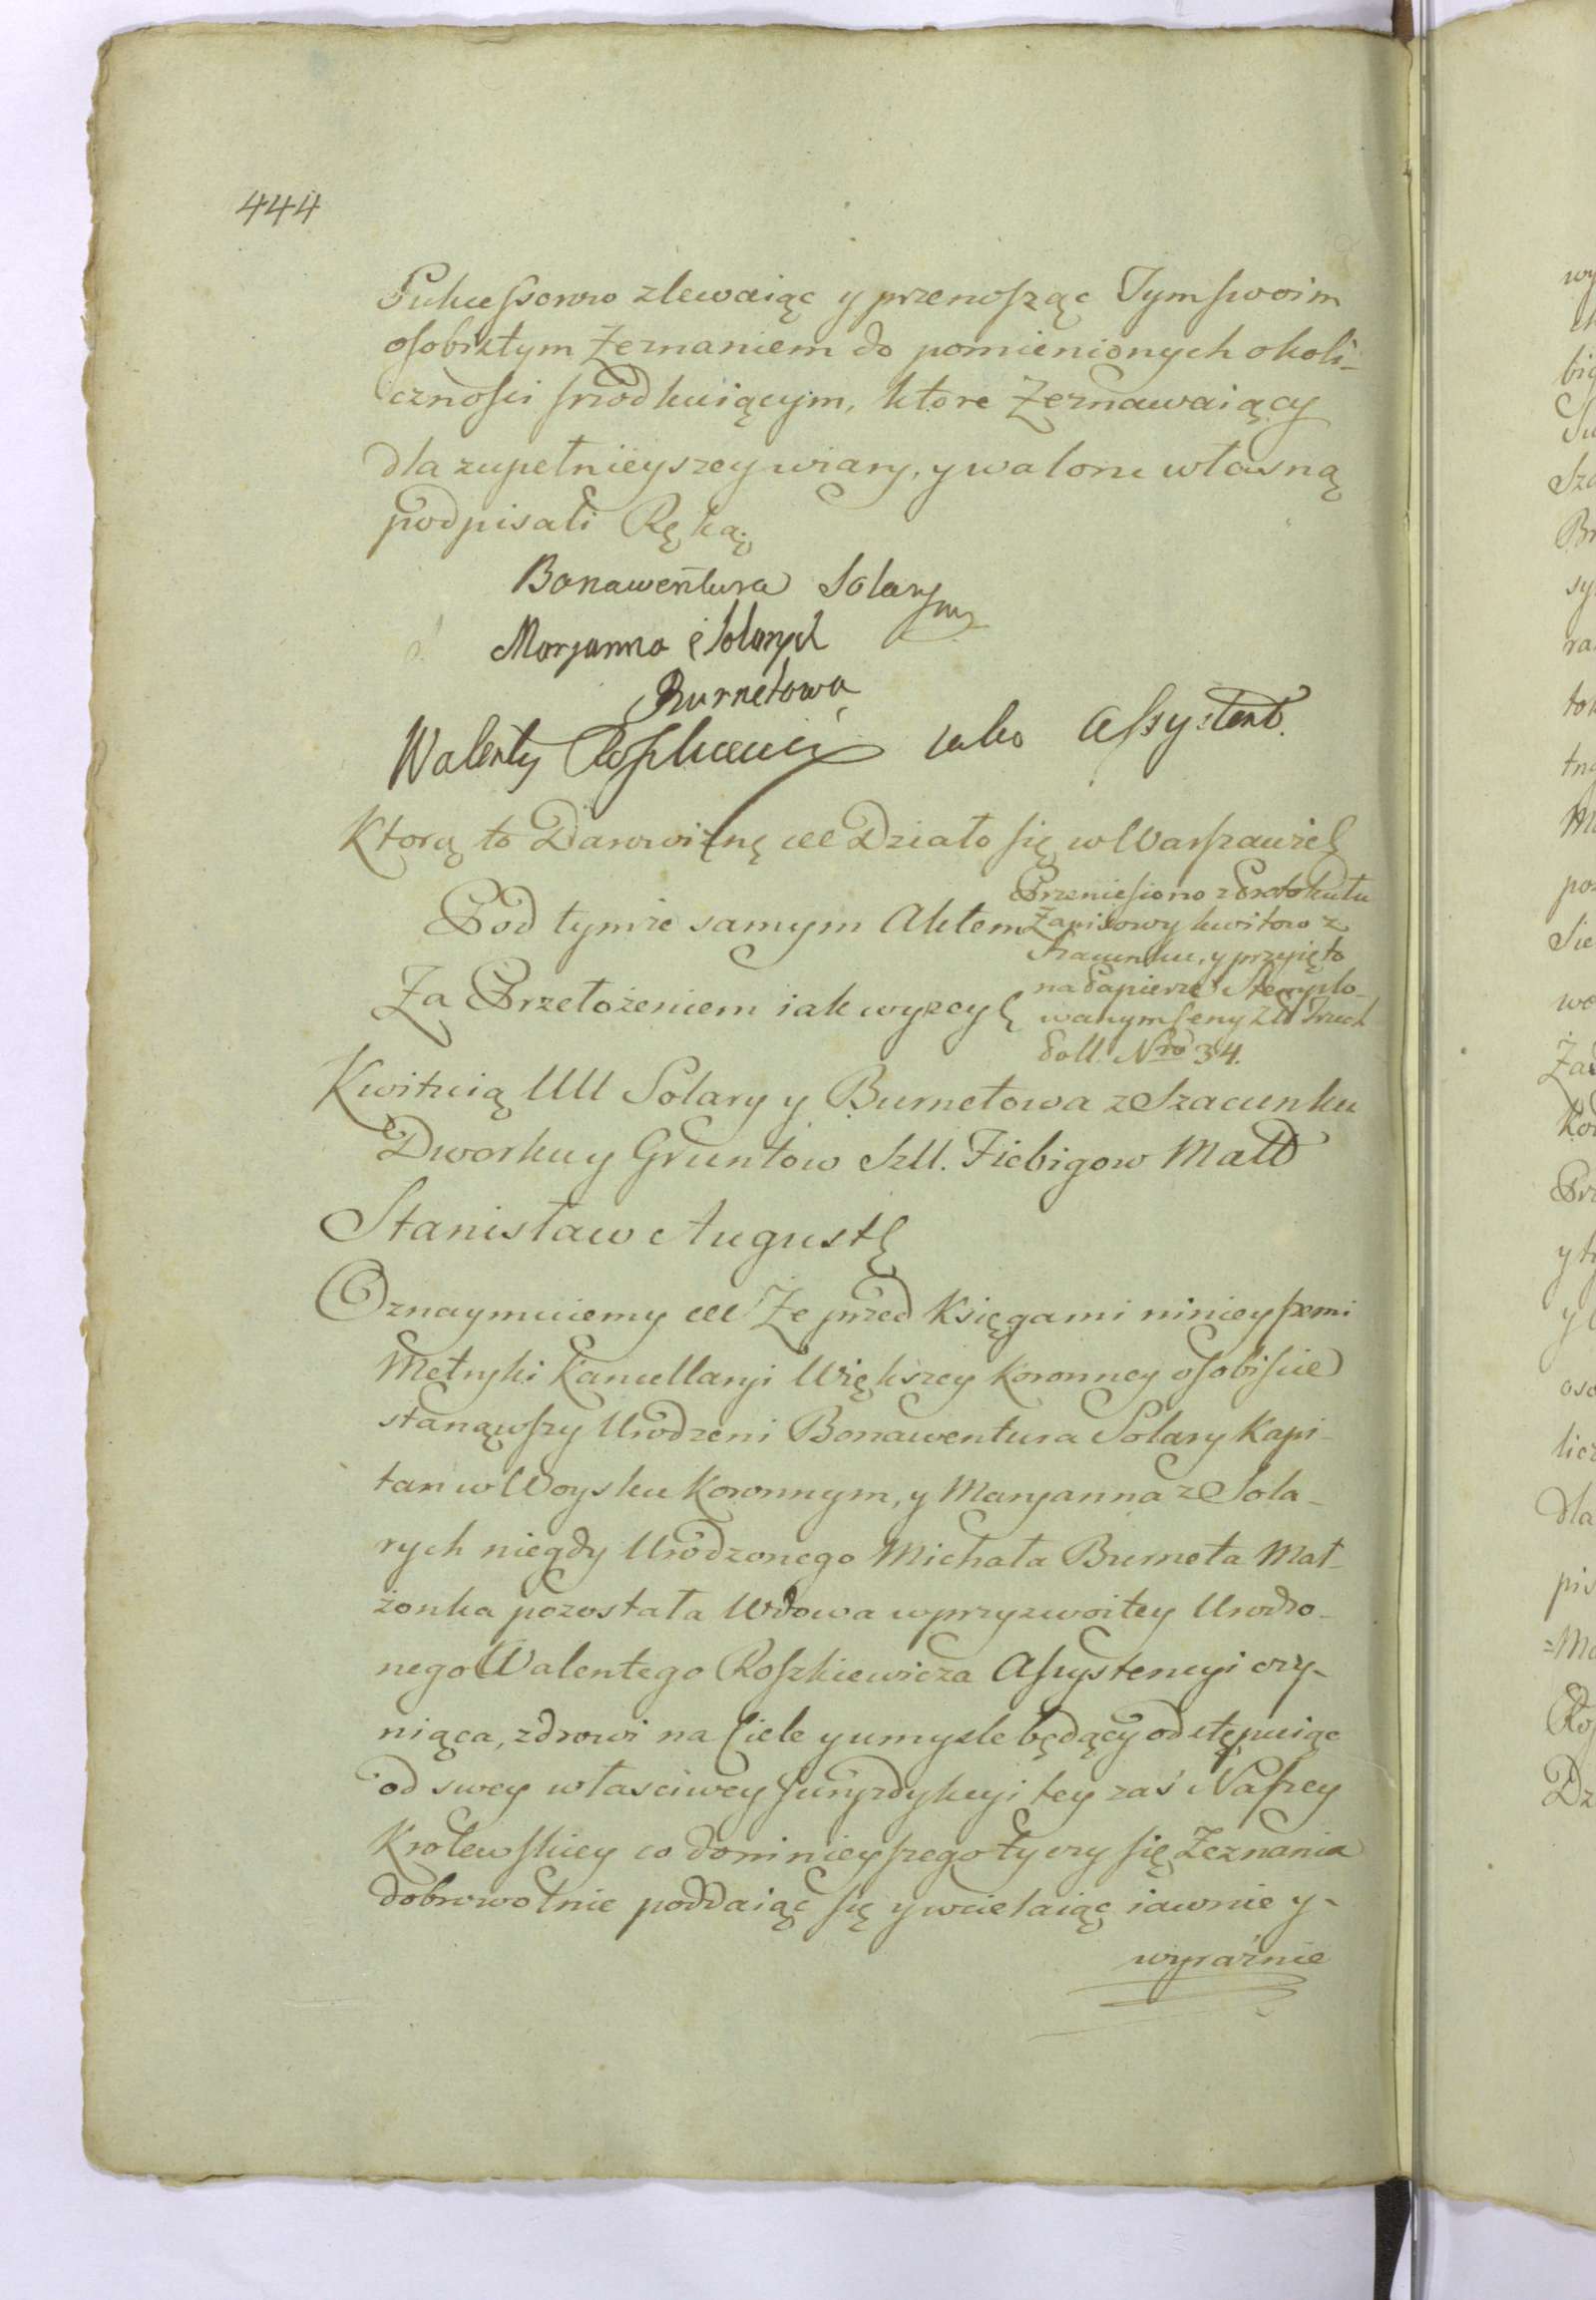 444
Sukcessorow zlewaiąc y przenosząc Tym swoim
osobistym Zeznaniem do pomienionych okoli-
cznosci srzodkuiącym, ktore Zeznawaiący
dla zupełnieyszey wiary, y waloru własną
podpisali Ręką.
Bonawentura Solary mp
Maryanna z Solarych
Burnetowa
Walenty Roszkiewicz iako Assystent.
Ktorą to Darowiznę &c Działo się w Warszawie &
Pod tymże samym Aktem
Za Przełożeniem iak wyżey &
Przeniesiono z Protokułu
Zapisowy kwitow z
Szacunku, y przyięto
na Papierze Stemplo-
wanym Ceny Zł Trzech
Foll. Nro 34.
Kwituią UU Solary y Burnetowa z Szacunku
Dworku y Gruntow Szll. Fiebigow Małł
Stanisław August &
Oznaymuiemy &c Że przed Księgami ninieyszemi
Metryki Kancellaryi Większey Koronney osobiscie
stanąwszy Urodzeni Bonawentura Solary Kapi-
tan w Woysku Koronnym, y Maryanna z Sola-
rych niegdy Urodzonego Michała Burneta Mał-
żonka pozostała Wdowa w przyzwoitey Urodzo-
nego Walentego Roszkiewicza Assystencyi czy-
niąca, zdrowi na Ciele y umysle będący odstępuiąc
od swey własciwey Juryzdykcyi tey zaś Naszey
Krolewskiey co do ninieyszego tyczy się Zeznania
dobrowolnie poddaiąc się y wcielaiąc iawnie y-
wyraźnie